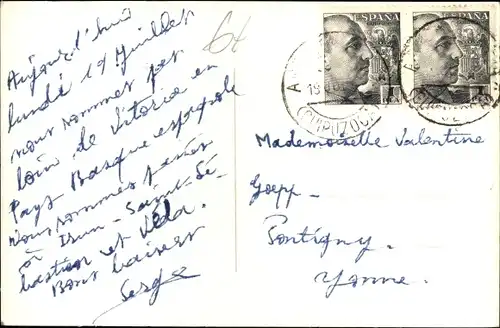 Aujourd'hui
lundi 19 Juillet
nous sommes pas
loin de Vitoria en
Pays Basque espagnole
Nous sommes passés
à Irun - Saint-Sé-
bastien et
Bons baisers
Serge
64
ESPAÑA
ESPAÑA
(GUIPUZCOA)
Mademoiselle Valentine
Goepp.
Pontigny.
Yonne.